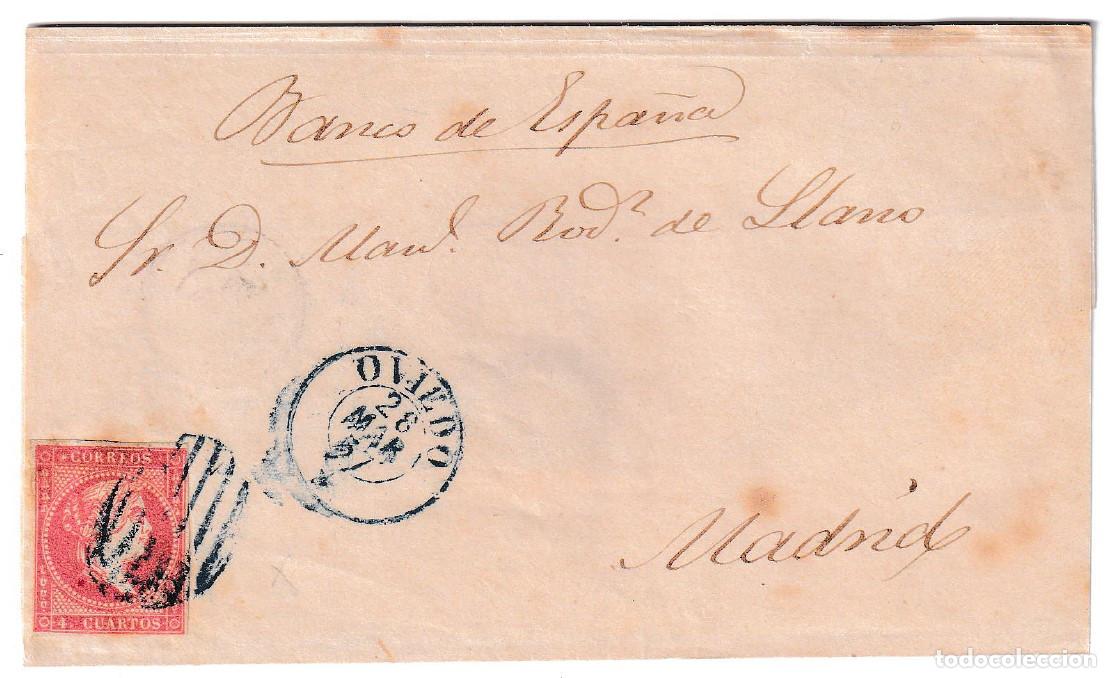 Banco de España
Sr. D. Manl. Rodr. de Llano
OVIEDO
28
MAR
Madrid
CORREOS
4 CUARTOS
todocoleccion